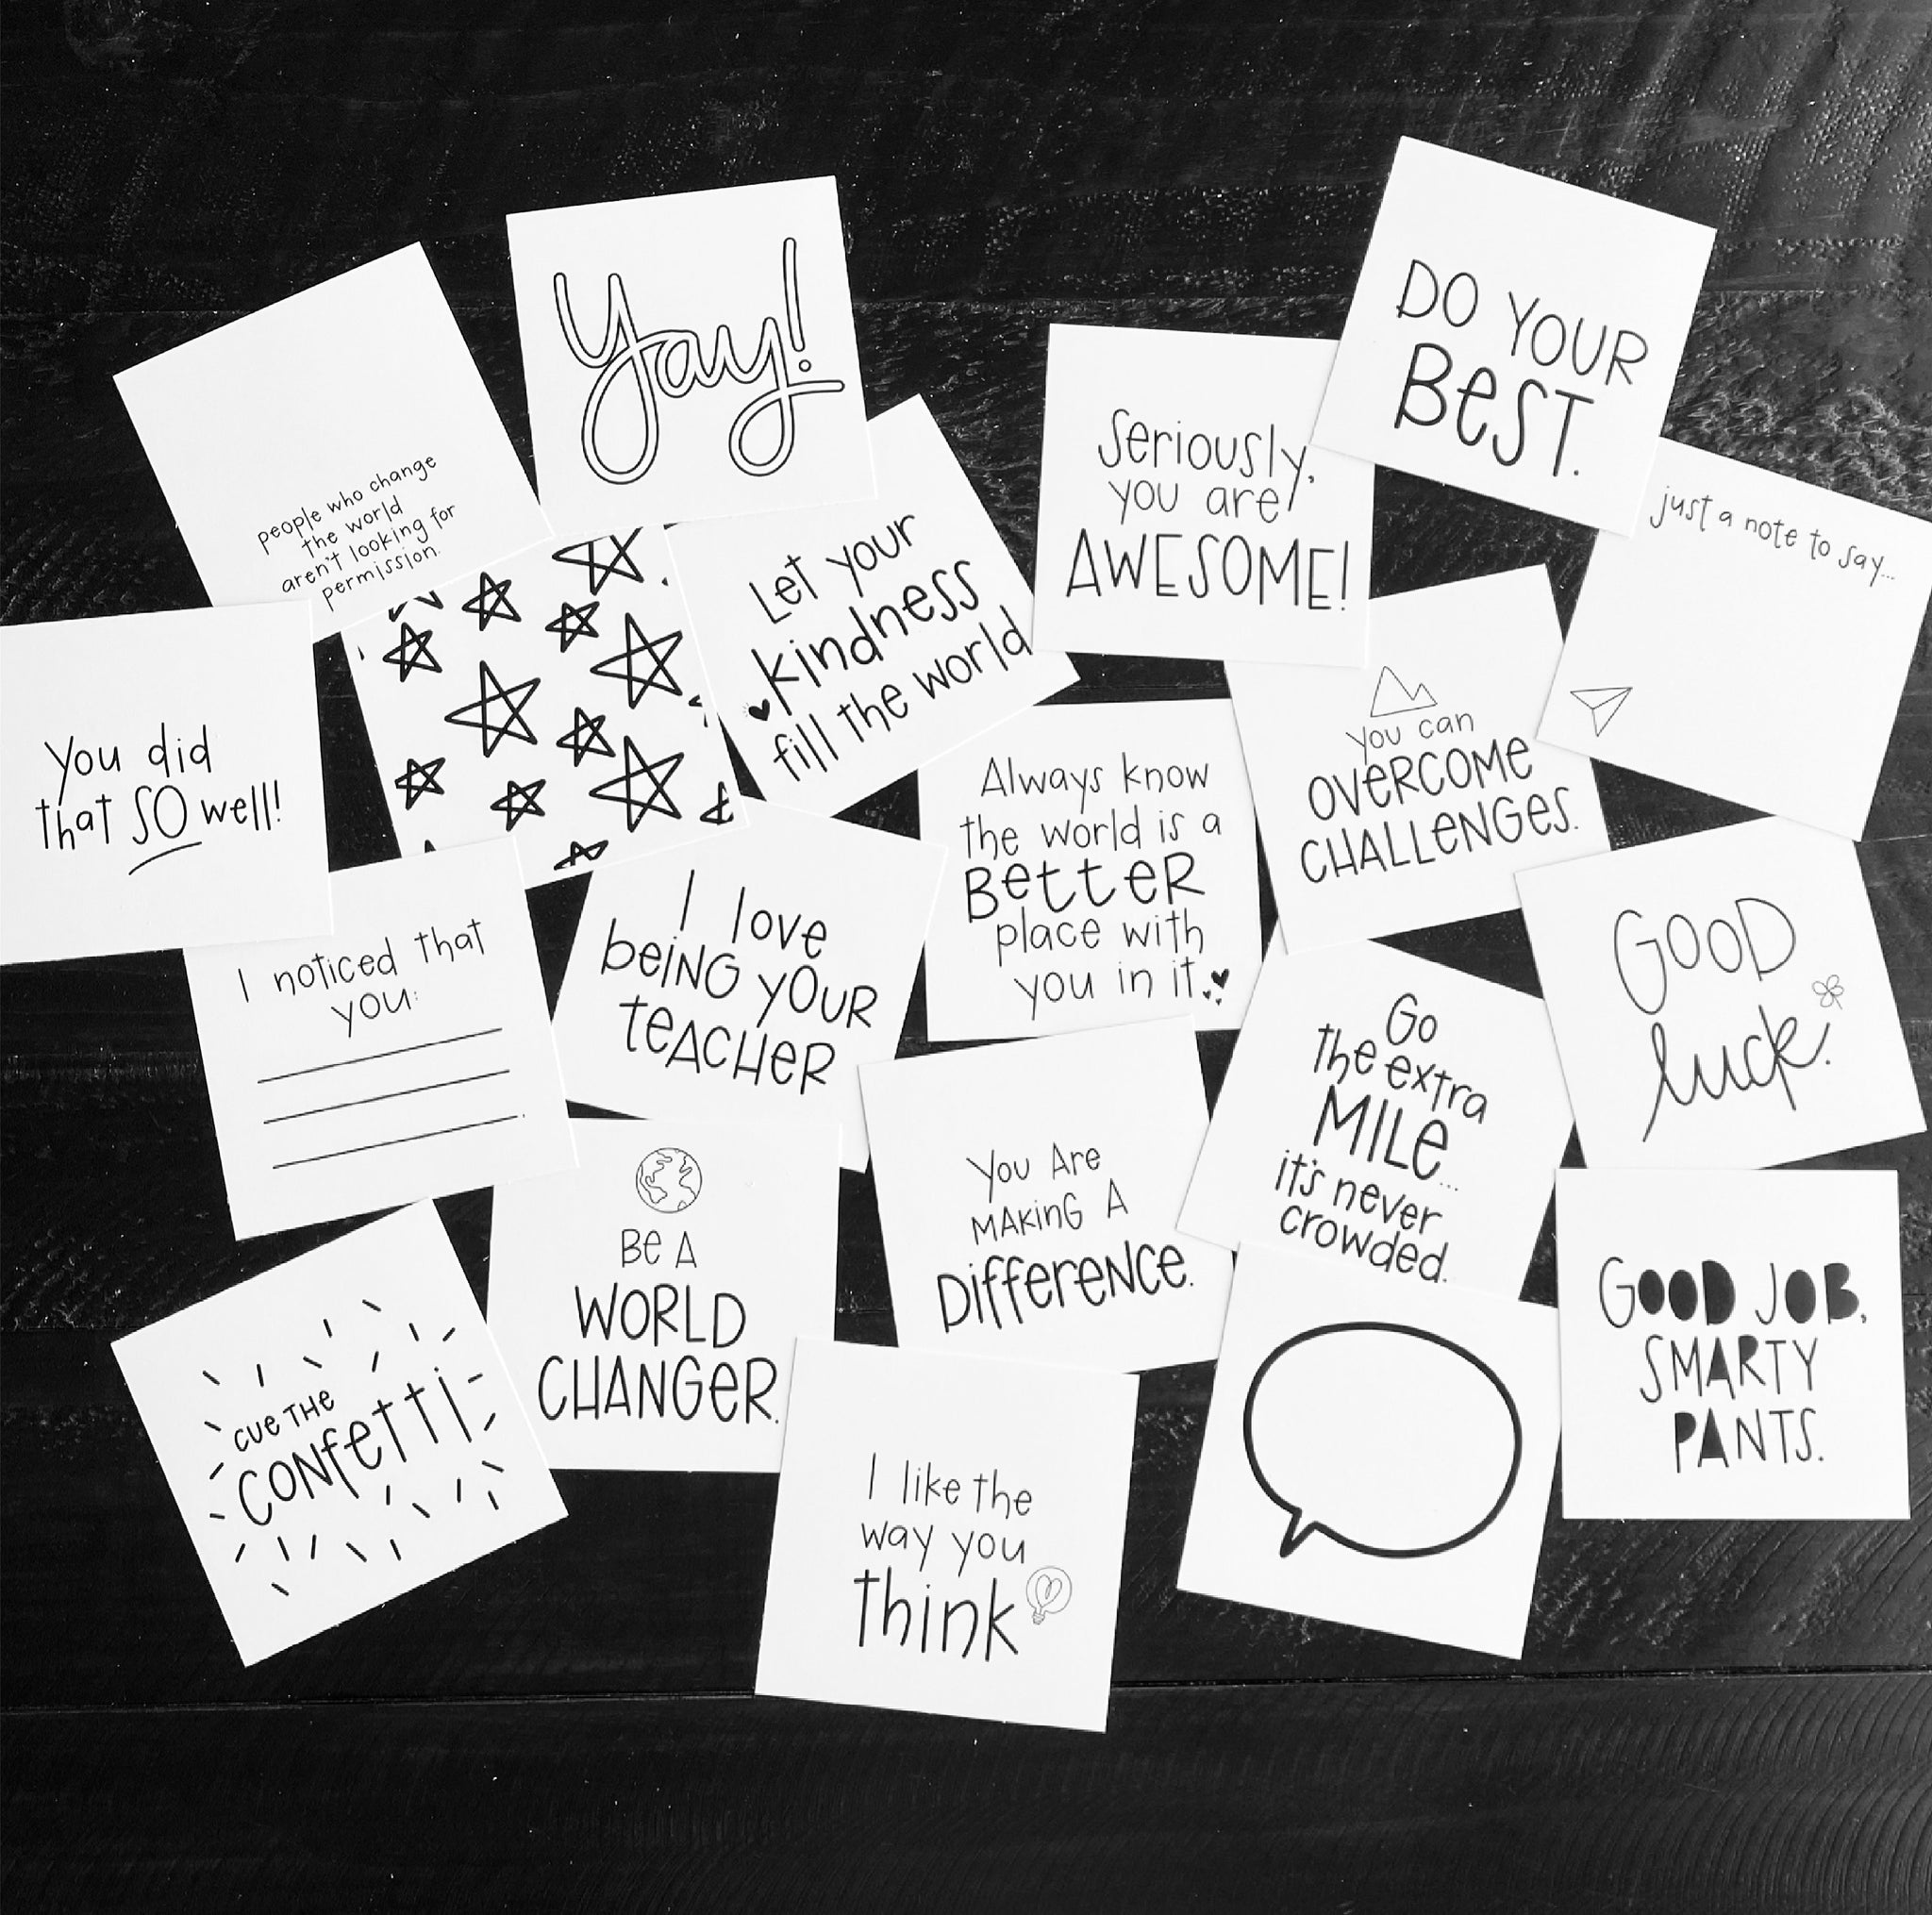 people who change
the world
aren't looking for
permission.
Yay!
DO YOUR
BEST.
Seriously,
you are
AWESOME!
just a note to say...
Let your
kindness
fill the world
You did
that SO well!
Always know
the world is a
BETTER
place with
you in it.
you can
OVERCOME
CHALLENGES.
I noticed that
you:
I love
being YOUR
TEACHER
GOOD
luck.
Go
the extra
MILE...
it's never
crowded.
BE A
WORLD
CHANGER.
You Are
MAKING A
DIFFERENCE.
GOOD JOB,
SMARTY
PANTS.
CUE THE
CONFETTI
I like the
way you
think